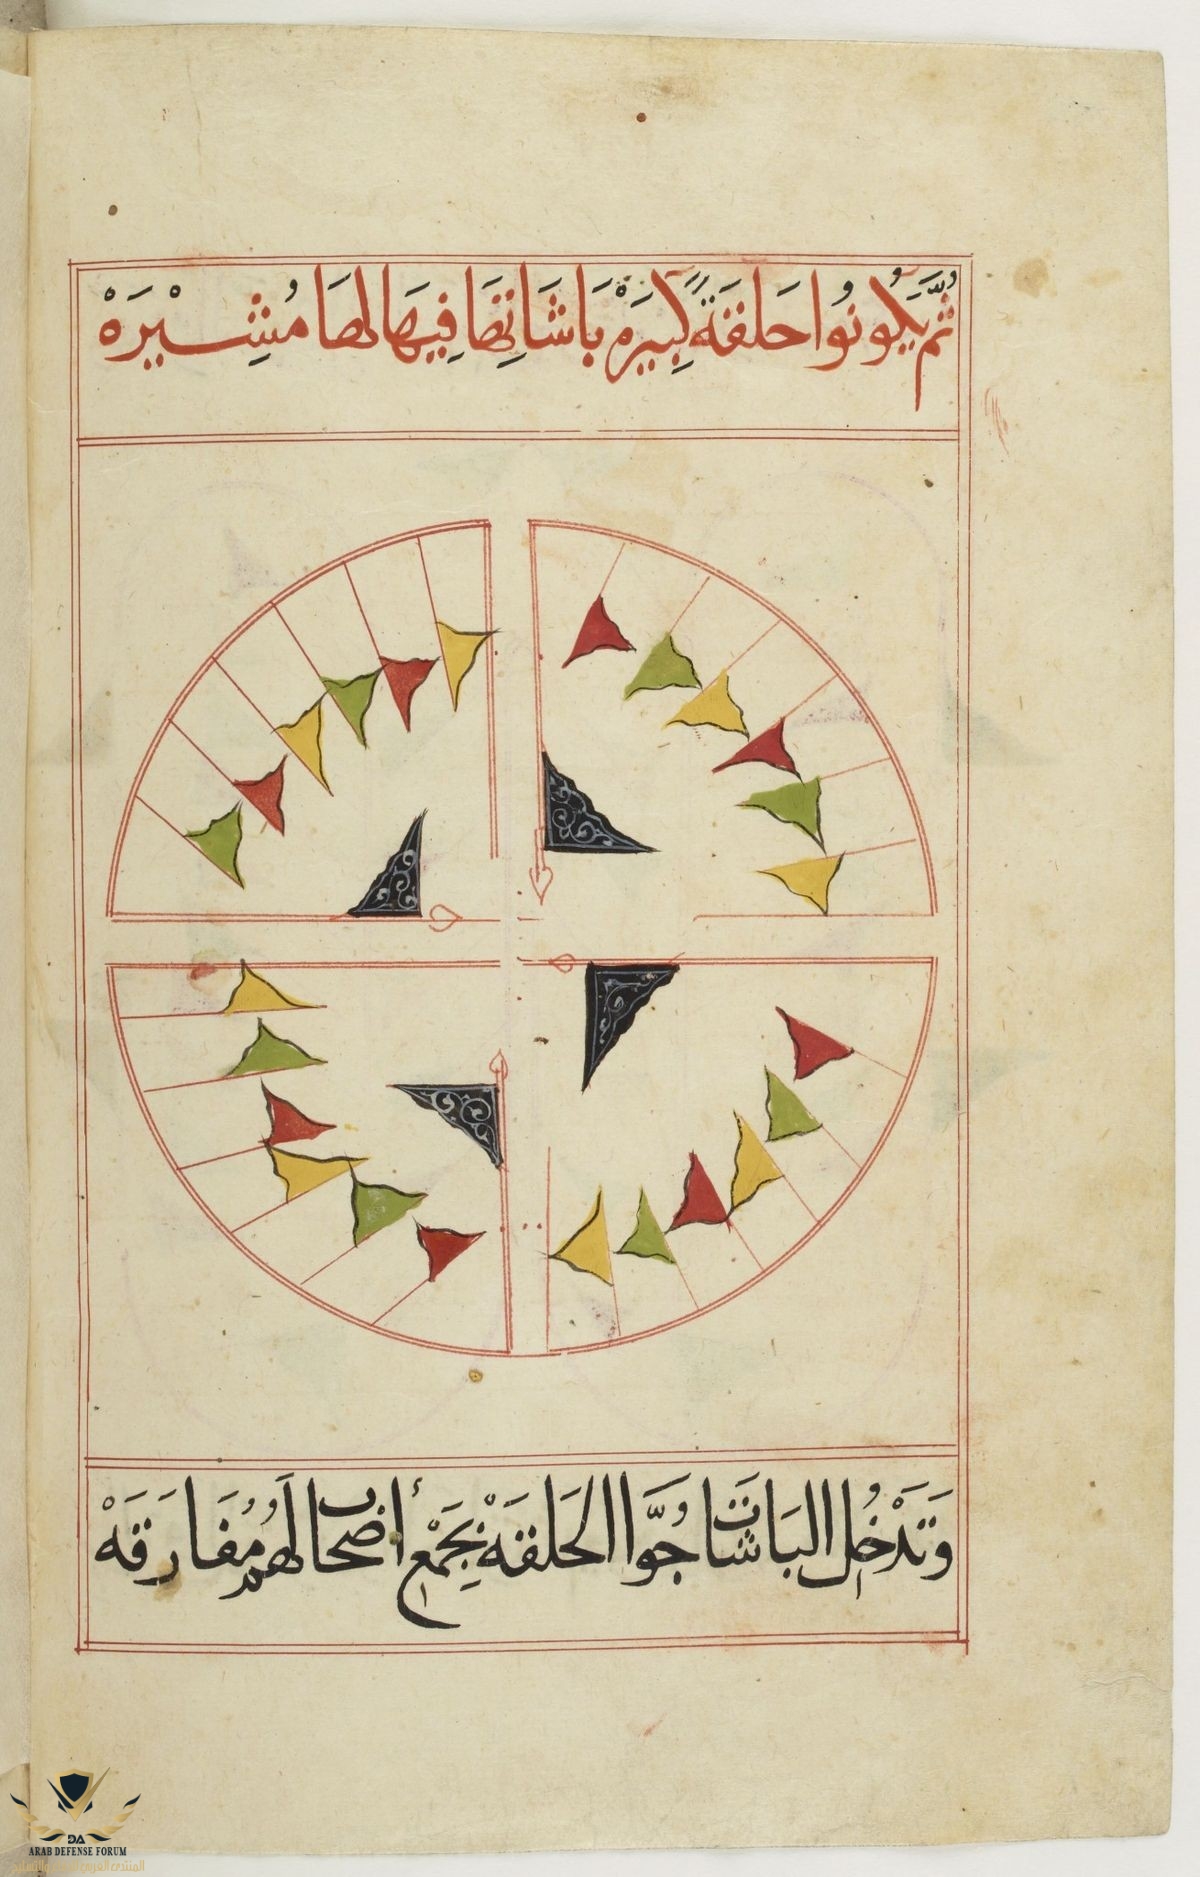 ثُمَّ يَكُونُوا حَلَقَةً كَبِيرَهْ بَاشَاتِهَا فِيهَا لهَا مُشِيرَهْ
وَتَدْخُل البَاشَاتْ جُوَّا الحَلَقَهْ بِجَمْعِ أَصْحَابٍ لَهُم مُفَارَقَهْ
DA
ARAB DEFENSE FORUM
المنتدى العربي للدفاع والتسليح